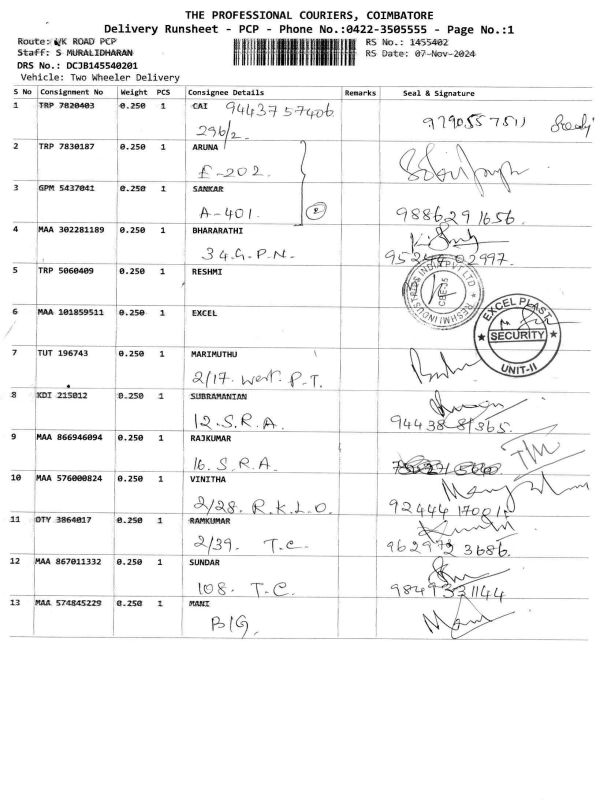 THE PROFESSIONAL COURIERS, COIMBATORE
Delivery Runsheet - PCP - Phone No.:0422-3505555 - Page No.:1
Route: VK ROAD PCP
RS No.: 1455402
Staff: S MURALIDHARAN
RS Date: 07-Nov-2024
DRS No.: DCJB145540201
Vehicle: Two Wheeler Delivery
S No Consignment No Weight PCS Consignee Details Remarks Seal & Signature
1 TRP 7820403 0.250 1 CAI 94437 57406
296/2. 9790557511
2 TRP 7830187 0.250 1 ARUNA
F-202.
3 GPM 5437041 0.250 1 SANKAR
A-401. 2 9886291656.
4 MAA 302281189 0.250 1 BHARARATHI
34.G.P.N.
5 TRP 5060409 0.250 1 RESHMI
RESHMI INDUSTRIES INDIA PVT LTD
6 MAA 101859511 0.250 1 EXCEL
EXCEL PLAST
SECURITY
UNIT-II
7 TUT 196743 0.250 1 MARIMUTHU
2/17. West. P.T.
8 KDI 215012 0.250 1 SUBRAMANIAN
12. S.R.A. 94438-81365.
9 MAA 866946094 0.250 1 RAJKUMAR
16. S.R.A.
10 MAA 576000824 0.250 1 VINITHA
2/28. R.K.L.O.
11 OTY 3864017 0.250 1 RAMKUMAR
2/39. T.C. 962972 3686.
12 MAA 867011332 0.250 1 SUNDAR
108. T.C.
13 MAA 574845229 0.250 1 MANI
B/G. Mani